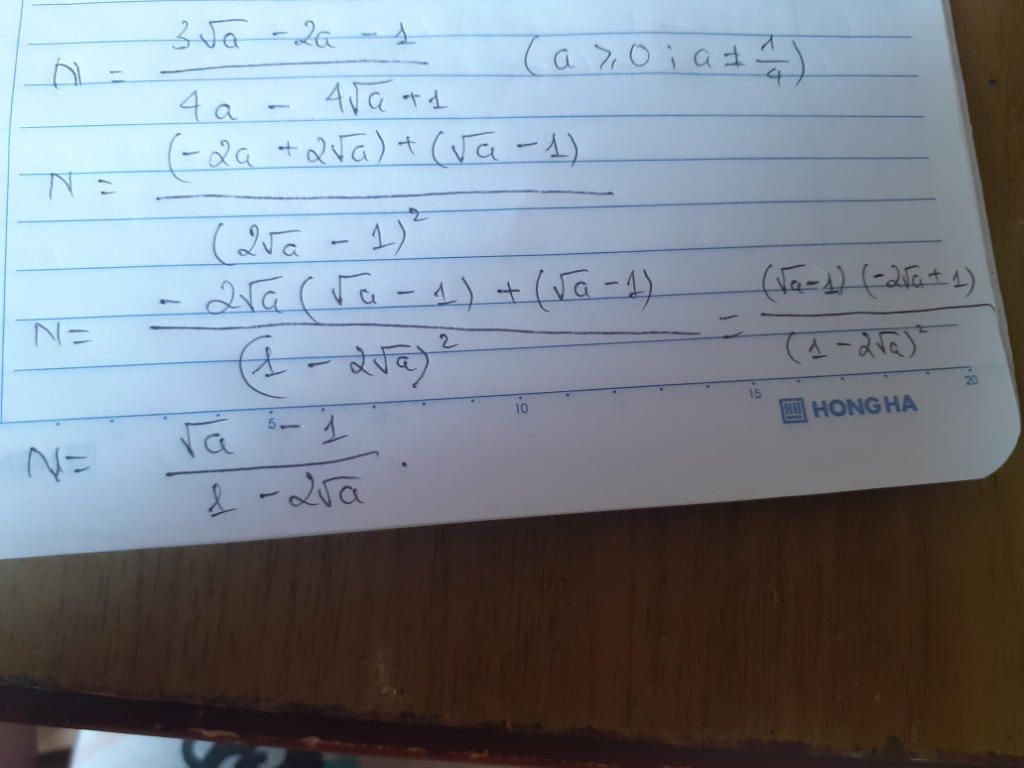 N = \frac{3\sqrt{a} - 2a - 1}{4a - 4\sqrt{a} + 1} (a ⩾ 0 ; a ≠ \frac{1}{4})
N = \frac{(-2a + 2\sqrt{a}) + (\sqrt{a} - 1)}{(2\sqrt{a} - 1)^2}
N = \frac{-2\sqrt{a}(\sqrt{a} - 1) + (\sqrt{a} - 1)}{(1 - 2\sqrt{a})^2} = \frac{(\sqrt{a} - 1)(-2\sqrt{a} + 1)}{(1 - 2\sqrt{a})^2}
5 10 15 20
HH HONG HA
N = \frac{\sqrt{a} - 1}{1 - 2\sqrt{a}} .